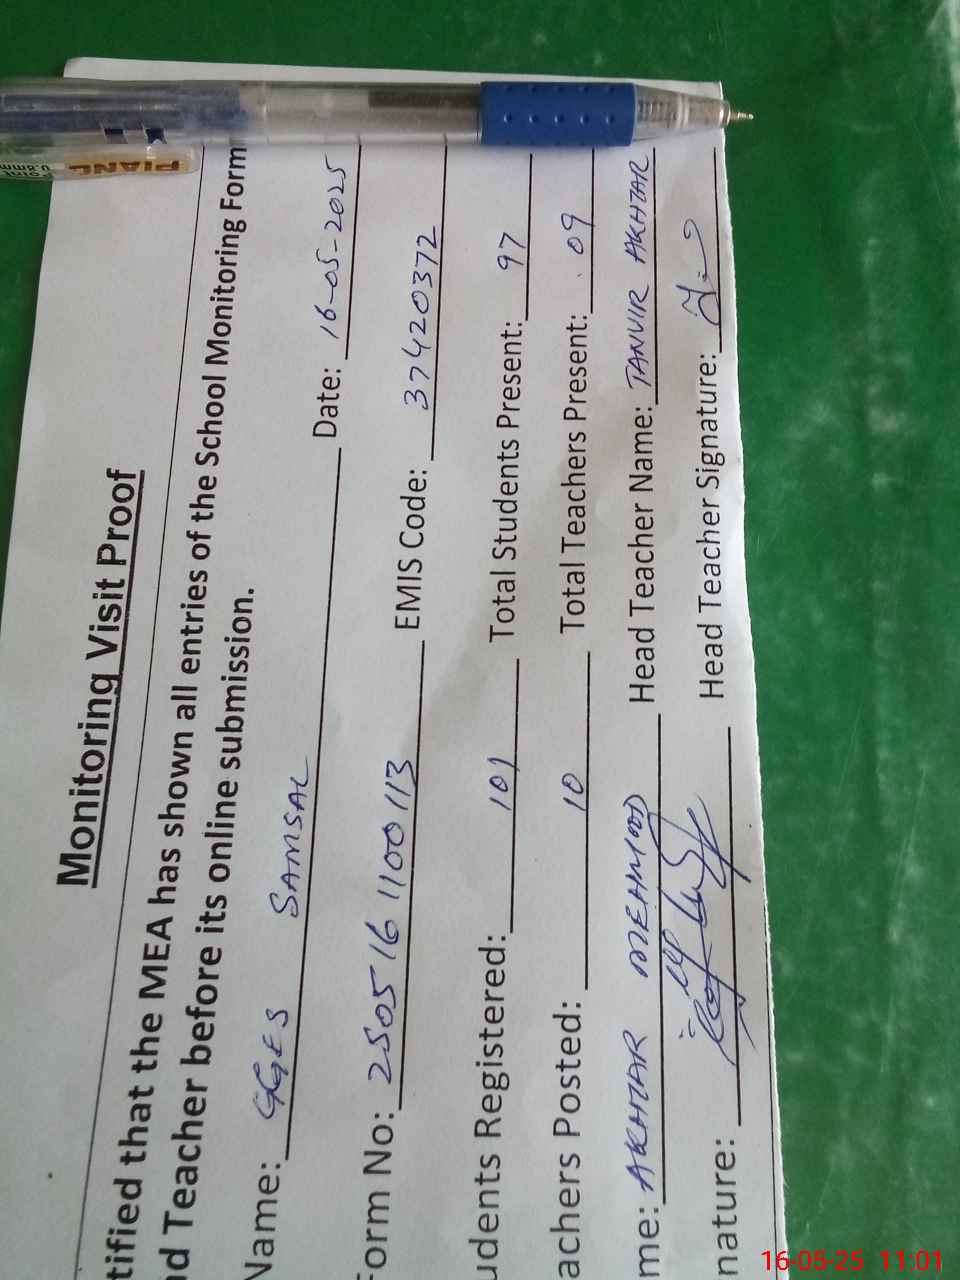 Monitoring Visit Proof
tified that the MEA has shown all entries of the School Monitoring Form
d Teacher before its online submission.
Name: GGES SAMSAL Date: 16-05-2025
Form No: 250516 1100113 EMIS Code: 37420372
udents Registered: 101 Total Students Present: 97
achers Posted: 10 Total Teachers Present: 09
me: AKHTAR MEHMOOD Head Teacher Name: TANVIR AKHTAR
nature: Head Teacher Signature:
PIANO
Point
0.8mm
16-05-25 11:01